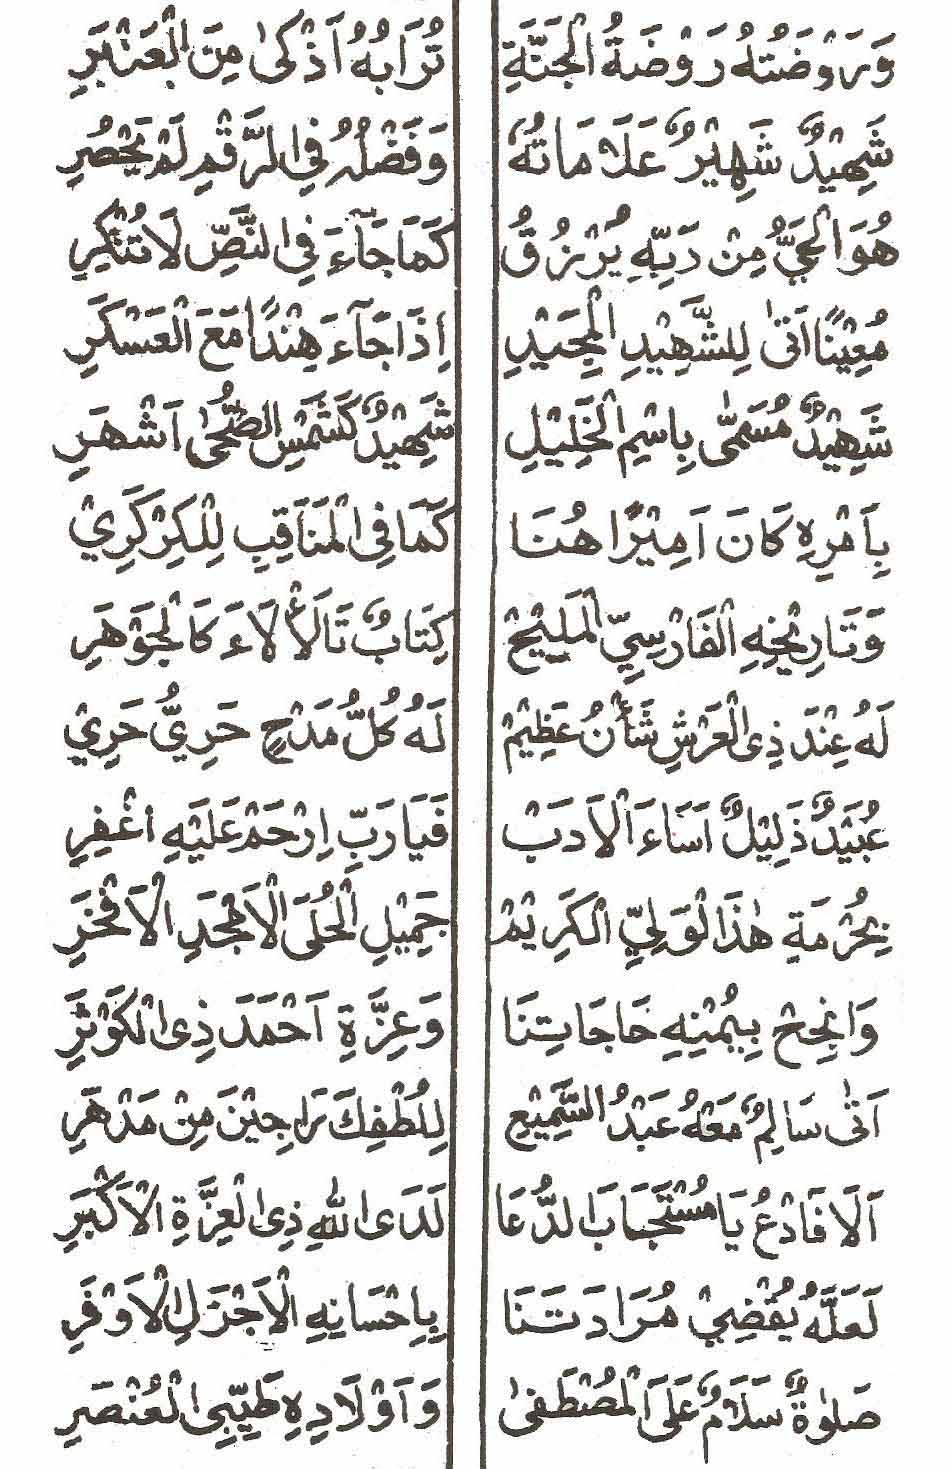 وَرَوْضَتُهُ رَوْضَةُ الْجَنَّةِ تُرَابُهُ اَذْكىٰ مِنَ الْعَنْبَرِ
شَهِيْدٌ شَهِيْرٌ عَلَامَاتُهُ وَفَضْلُهُ فِي الرَّقْمِ لَمْ يَحْصُرِ
هُوَ الْحَيُّ مِنْ رَبِّهِ يُرْزُقُ كَمَا جَآءَ فِي النَّصِّ لَا تُنْكِرِ
مُعِيْنًا اَتىٰ لِلشَّهِيْدِ الْمَجِيْدِ اِذَا جَآءَ هِنْدًا مَعَ الْعَسْكَرِ
شَهِيْدٌ مُسَمىّٰ بِاسْمِ الْخَلِيْلِ شَهِيْدٌ كَشَمْسِ الضُّحىٰ اَشْهَرِ
بِاَمْرِهِ كَانَ اَمِيْرًا هُنَا كَمَا فِي الْمَنَاقِبِ لِلْكِرْكَرِيْ
وَتَارِيْخِهِ الْفَارْسِيِّ الْمَلِيْحْ كِتَابٌ تَالَأْلَاءَ كَالْجَوْهَرِ
لَهُ عِنْدَ ذِي الْعَرْشِ شَأْنٌ عَظِيْمْ لَهُ كُلُّ مَدْحٍ حَرِيٌّ حَرِيْ
عُبَيْدٌ ذَلِيْلٌ اَسَاءَ الْاَدَبْ فَيَا رَبِّ اِرْحَمْ عَلَيْهِ اغْفِرِ
بِحُرْمَةِ هٰذَا الْوَلِيِّ الْكَرِيْمْ جَمِيْلِ الْحُلَى الْاَمْجَدِ الْاَفْخَرِ
وَانْجِحْ بِيُمْنِهِ حَاجَاتِنَا وَعِزَّةِ اَحْمَدَ ذِي الْكَوْثَرِ
اَتىٰ سَالِمٌ مَعْهُ عَبْدُ السَّمِيْعِ لِلُطْفِكَ رَاجِيْنَ مِنْ مَدْهَرِ
اَلَا فَادْعُ يَا مُسْتَجَابَ الدُّعَا لَدَى اللهِ ذِي الْعِزَّةِ الْاَكْبَرِ
لَعَلَّهُ يُقْضِيْ مُرَادَتَنَا بِاِحْسَانِهِ الْاَجْزَلِ الْاَوْفَرِ
صَلٰوةٌ سَلَامٌ عَلَى الْمُصْطَفىٰ وَاَوْلَادِهِ طَيِّبِي الْعُنْصَرِ